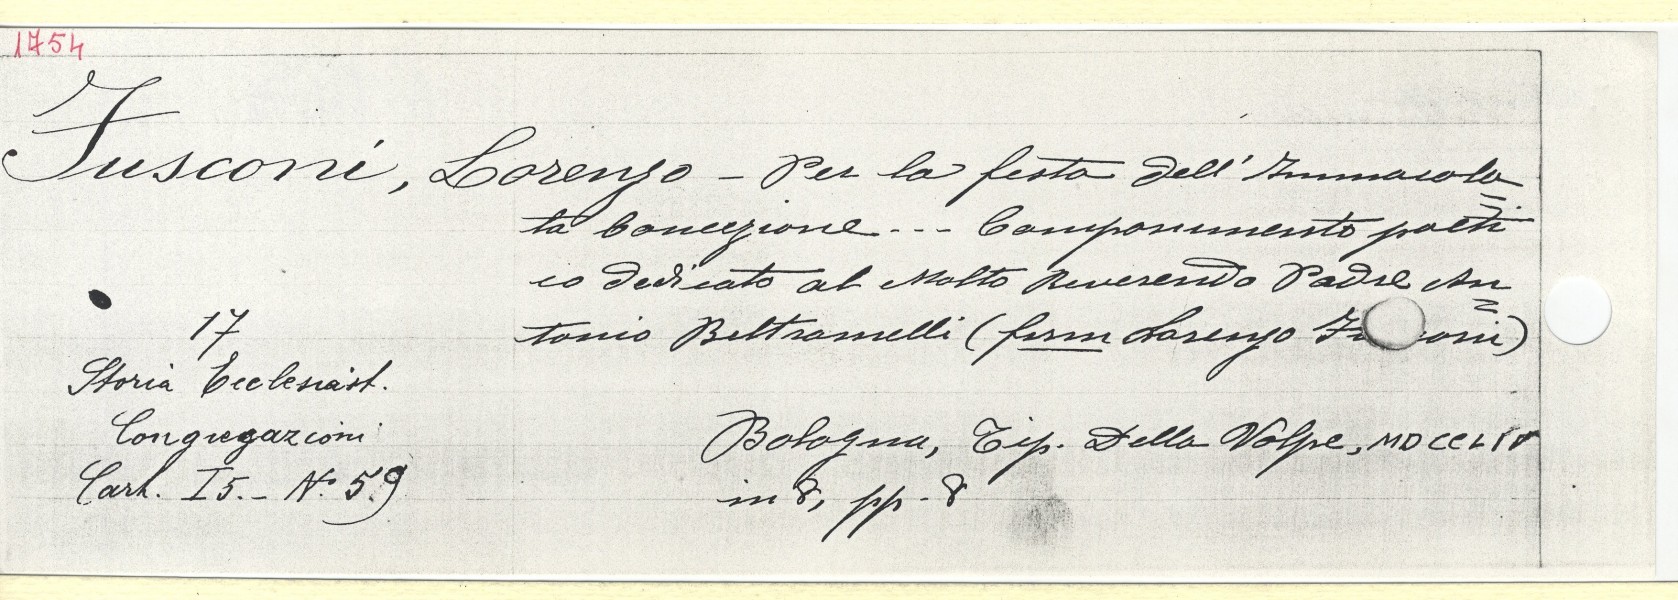 1754
Fusconi, Lorenzo - Per la festa dell' Immacola=
ta Concezione --- Componimento poeti=
co dedicato al Molto Reverendo Padre An=
tonio Beltramelli (firm Lorenzo Fu oni)
17
Storia Ecclesiast.
Congregazioni
Cart. I5. - N° 59
Bologna, Tip. Della Volpe, MDCCLIV
in 8, pp. 8